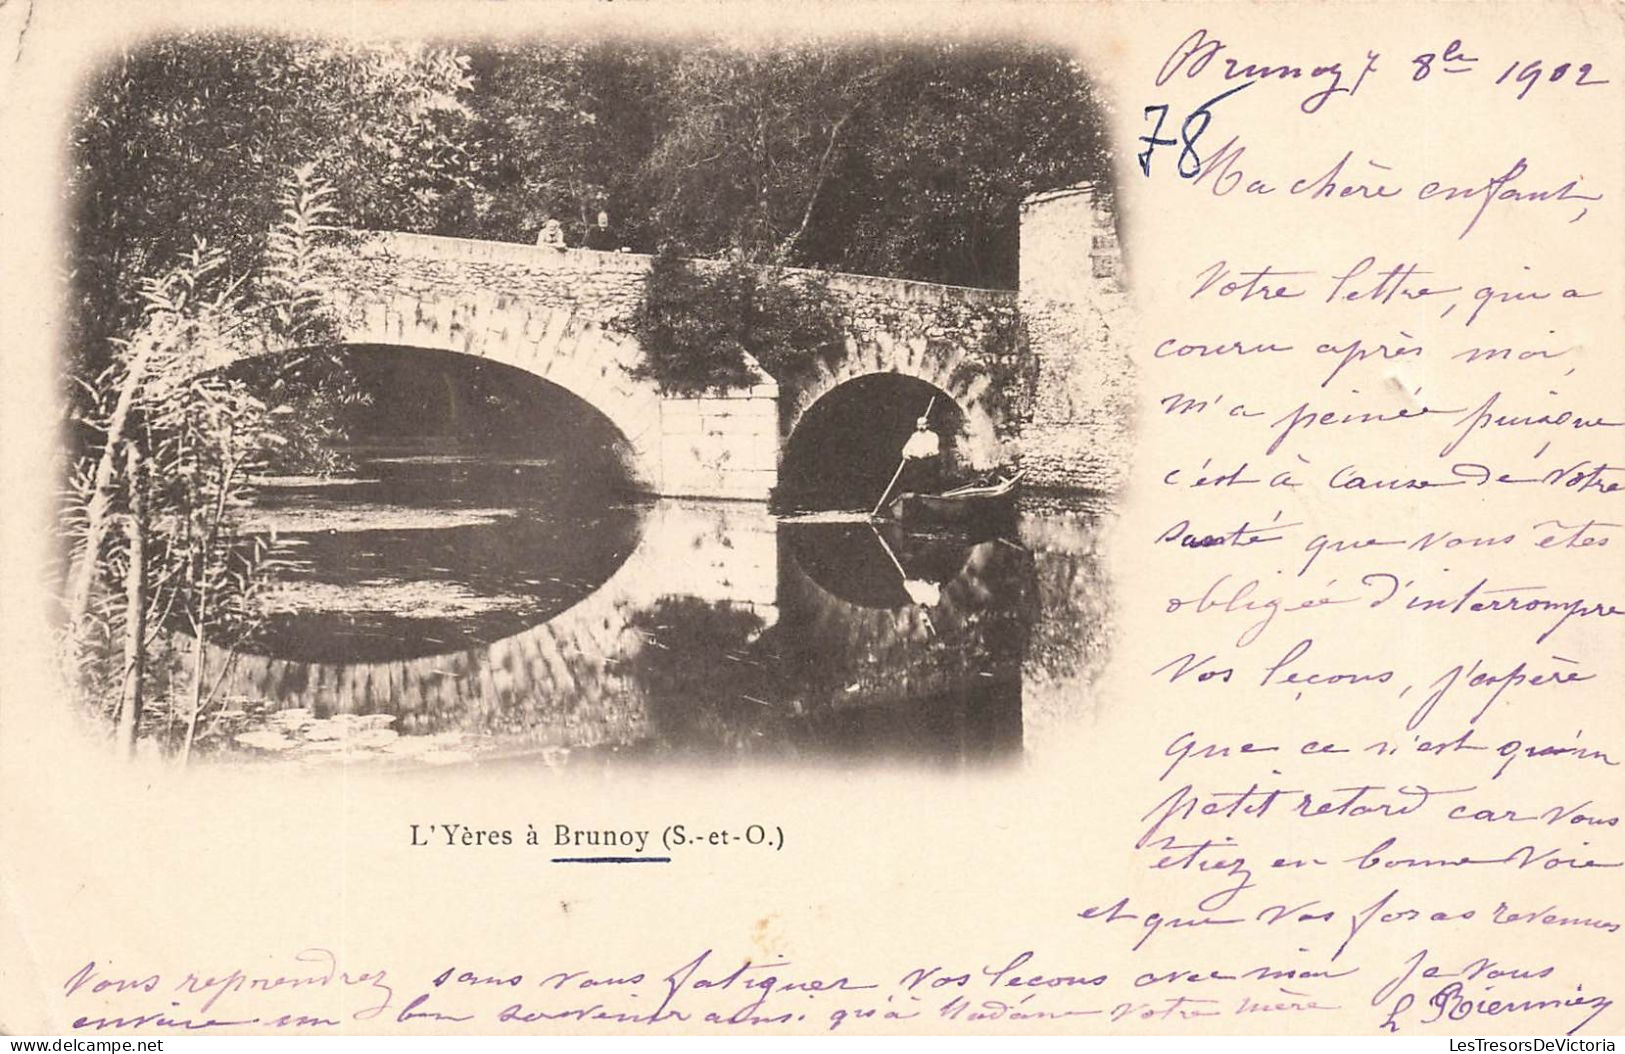 Brunoy 7 8bre 1902
78
Ma chère enfant,
Votre lettre, qui a
couru après moi,
m'a peinée puisque
c'est à cause de votre
santé que vous êtes
obligée d'interrompre
vos leçons, j'espère
que ce n'est qu'un
petit retard car vous
étiez en bonne voie
et que vos forces revenues
vous reprendrez sans vous fatiguer vos leçons avec moi Je vous
envoie un bon souvenir ainsi qu'à Madame votre mère
L'Yères à Brunoy (S.-et-O.)
LesTresorsDeVictoria.com